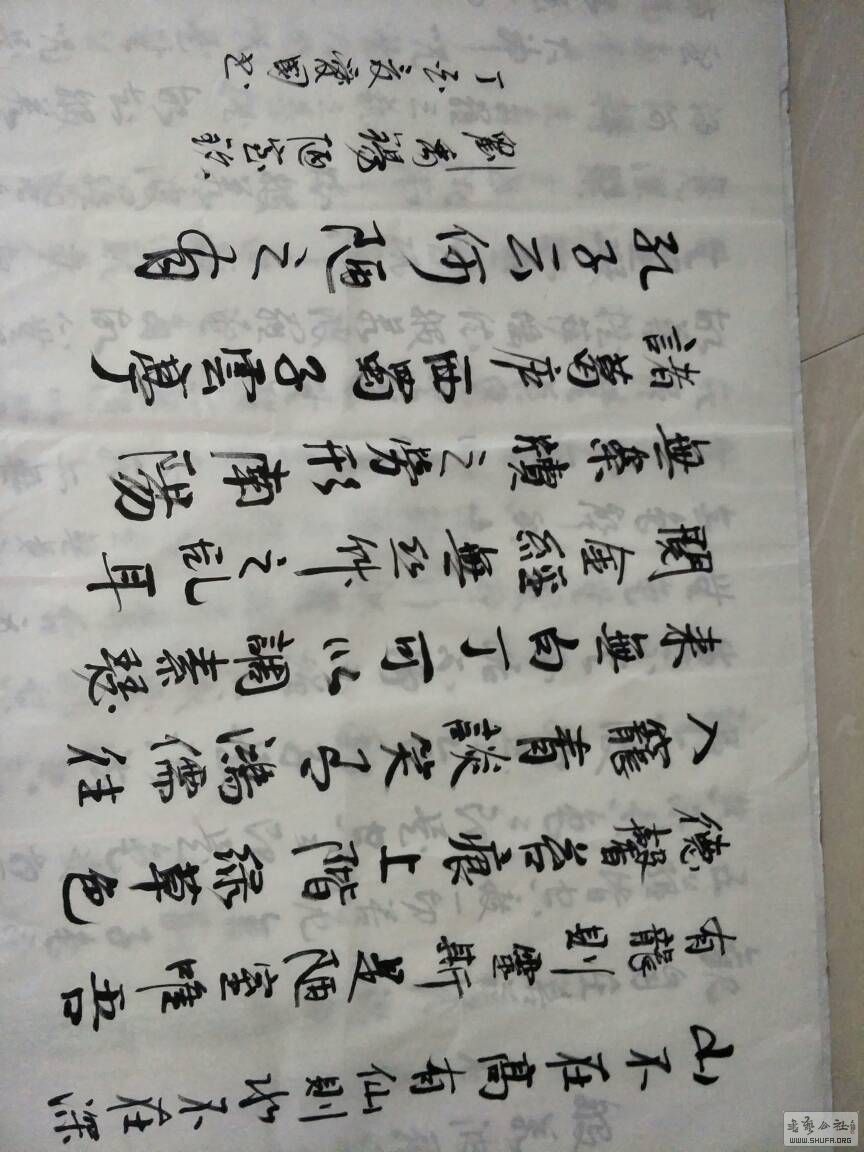 山不在高有仙則水不在深
有龍則靈斯是陋室唯吾
德馨苔痕上階绿草色
入簾青談笑有鴻儒往
来無白丁可以調素琴
閱金經無丝竹之乱耳
無案牘之勞形南陽
諸葛庐西蜀子雲亭
孔子云何陋之有
劉禹錫陋室銘
丁酉夏愛國书
书艺公社
WWW.SHUFA.ORG